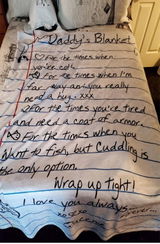 Daddy's Blanket
For the times when
you're cold.
For the times when I'm
far away and you really
need a hug. xxx
For the times you're tired
and need a coat of armor.
For the times when you
Want to fish, but Cuddling is
the only option.
Wrap up tight!
I love you always
xoxo